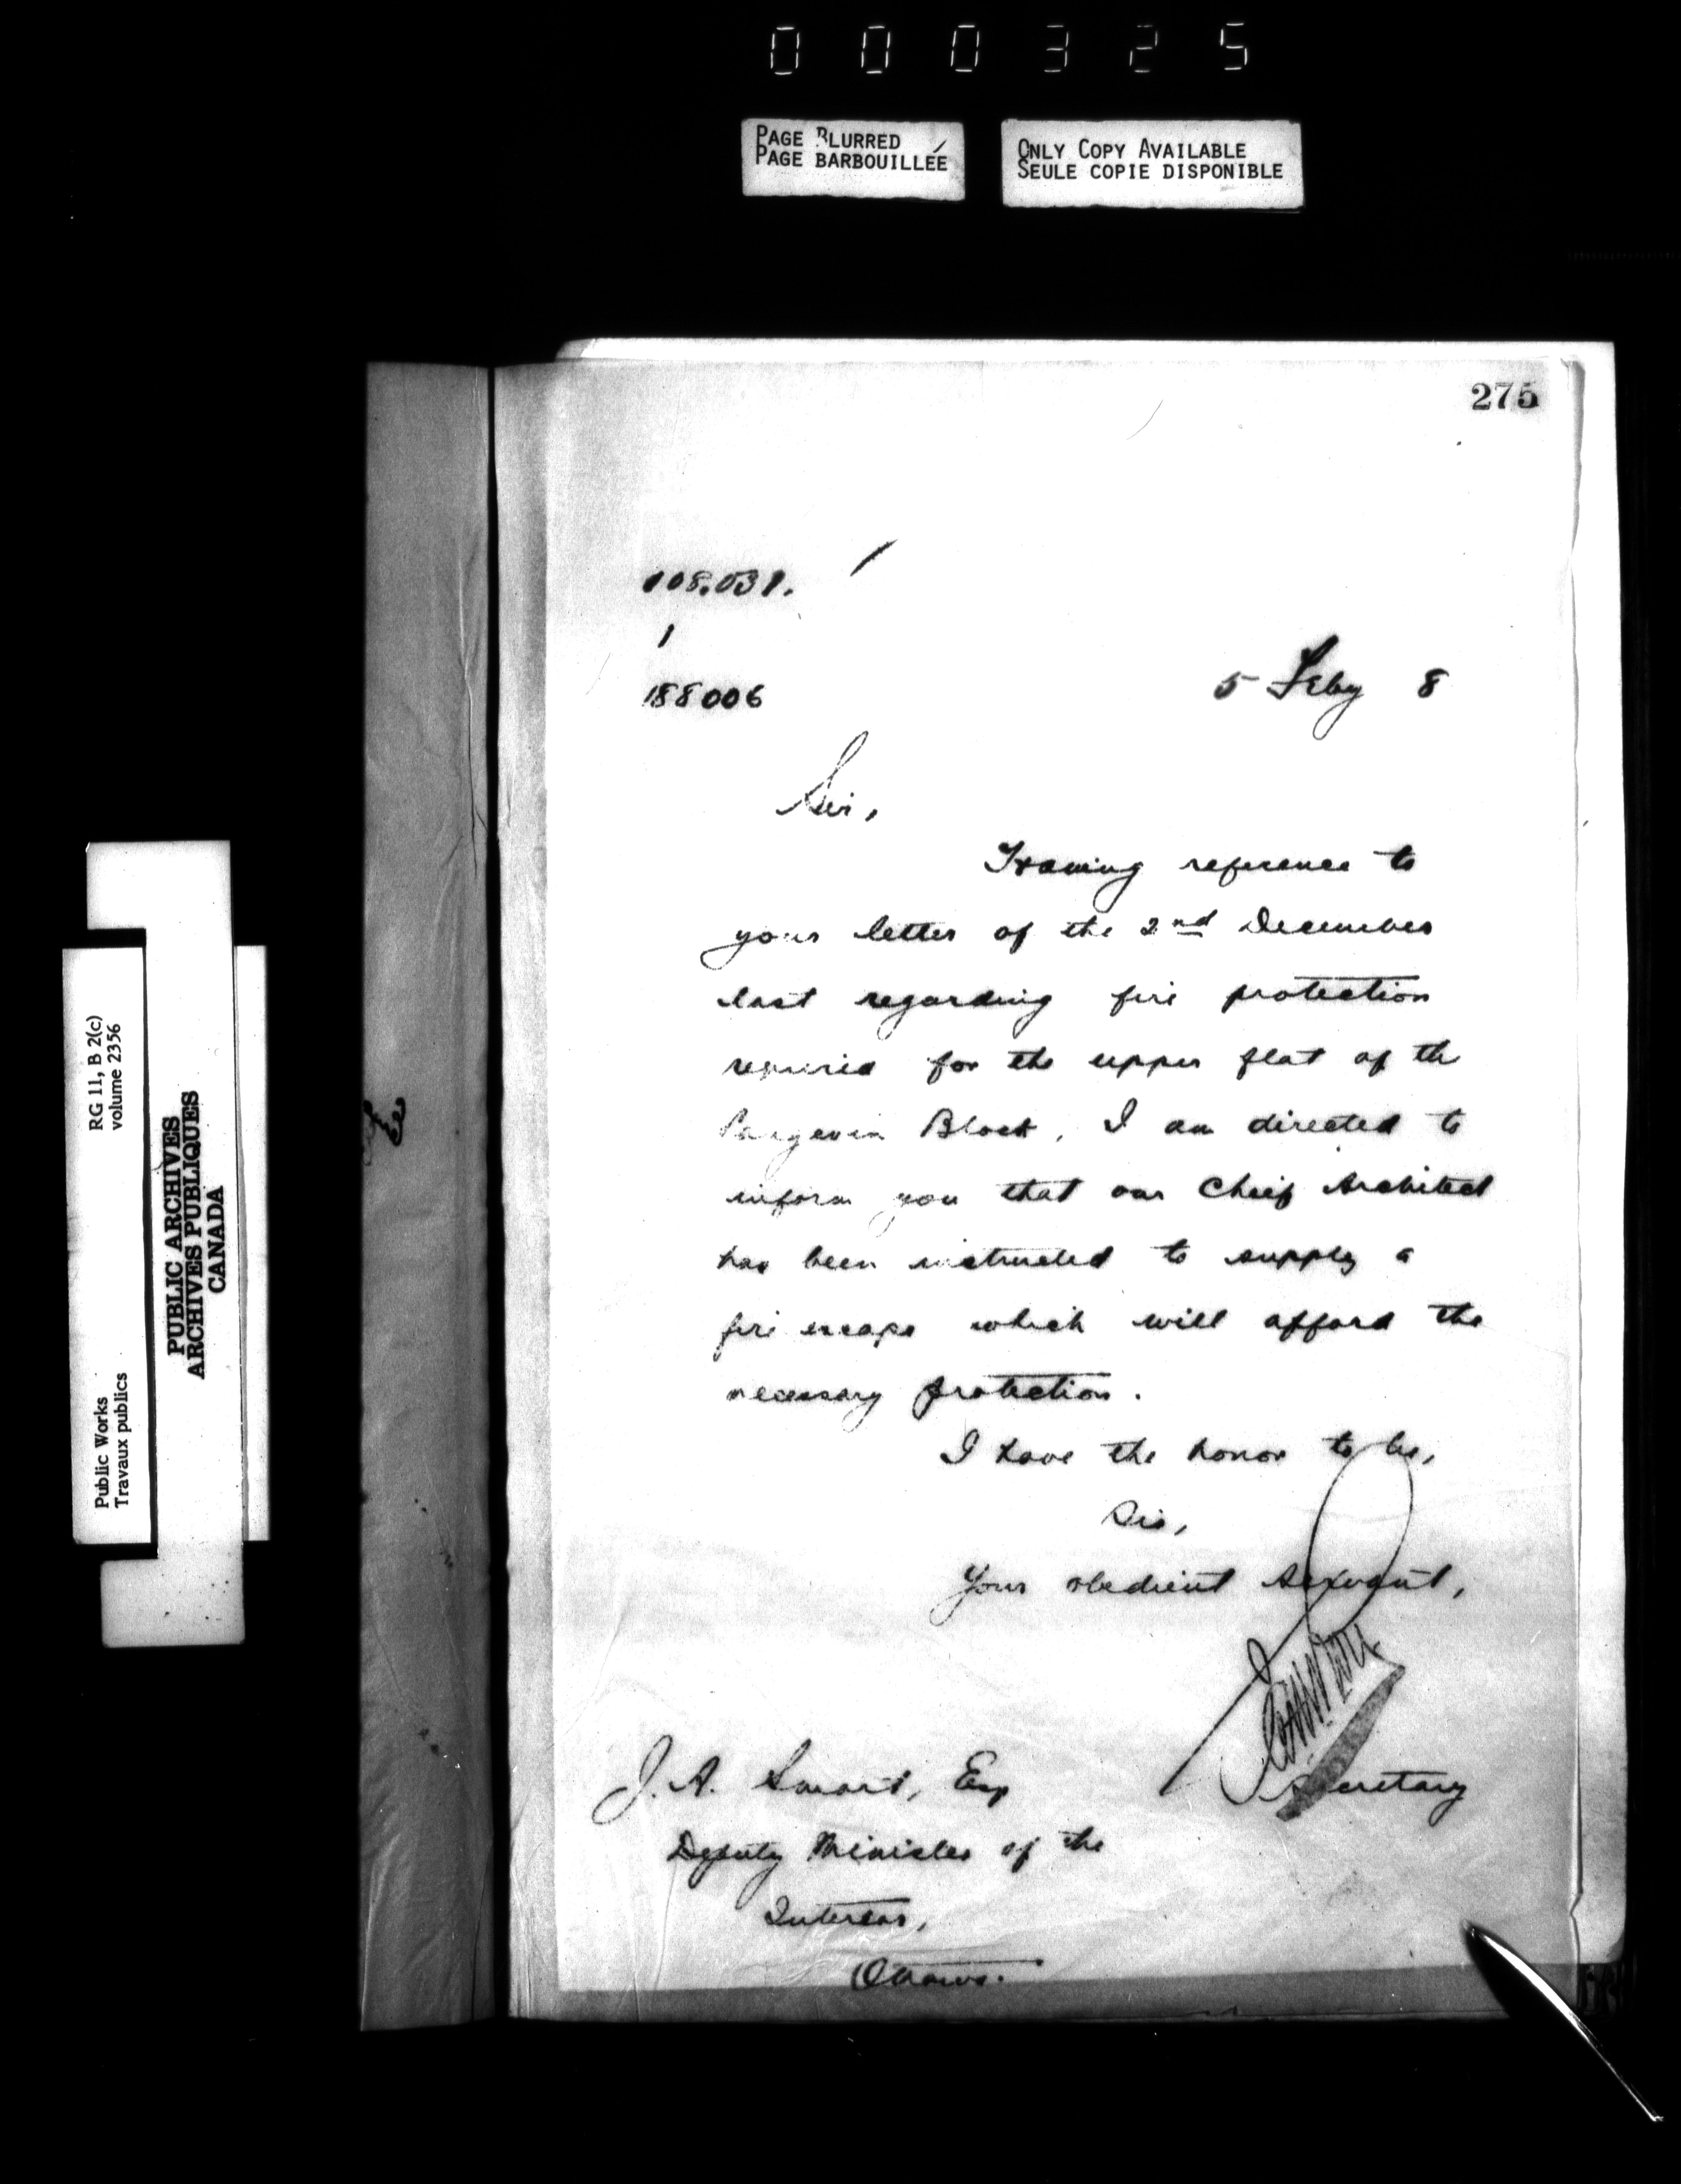 000325
PAGE BLURRED
PAGE BARBOUILLÉE
ONLY COPY AVAILABLE
SEULE COPIE DISPONIBLE
275
108.031.
1
188006
5 Feby 8
Sir,
Having reference to
your letter of the 2nd December
last regarding fire protection
required for the upper flat of the
Langevin Block, I am directed to
inform you that our Chief Architect
has been instructed to supply a
fire escape which will afford the
necessary protection.
I have the honor to be,
Sir,
Your obedient servant,
Secretary
J. A. Smart, Esq
Deputy Minister of the
Interior,
Ottawa.
RG 11, B 2(c)
volume 2356
Public Works
Travaux publics
PUBLIC ARCHIVES
ARCHIVES PUBLIQUES
CANADA